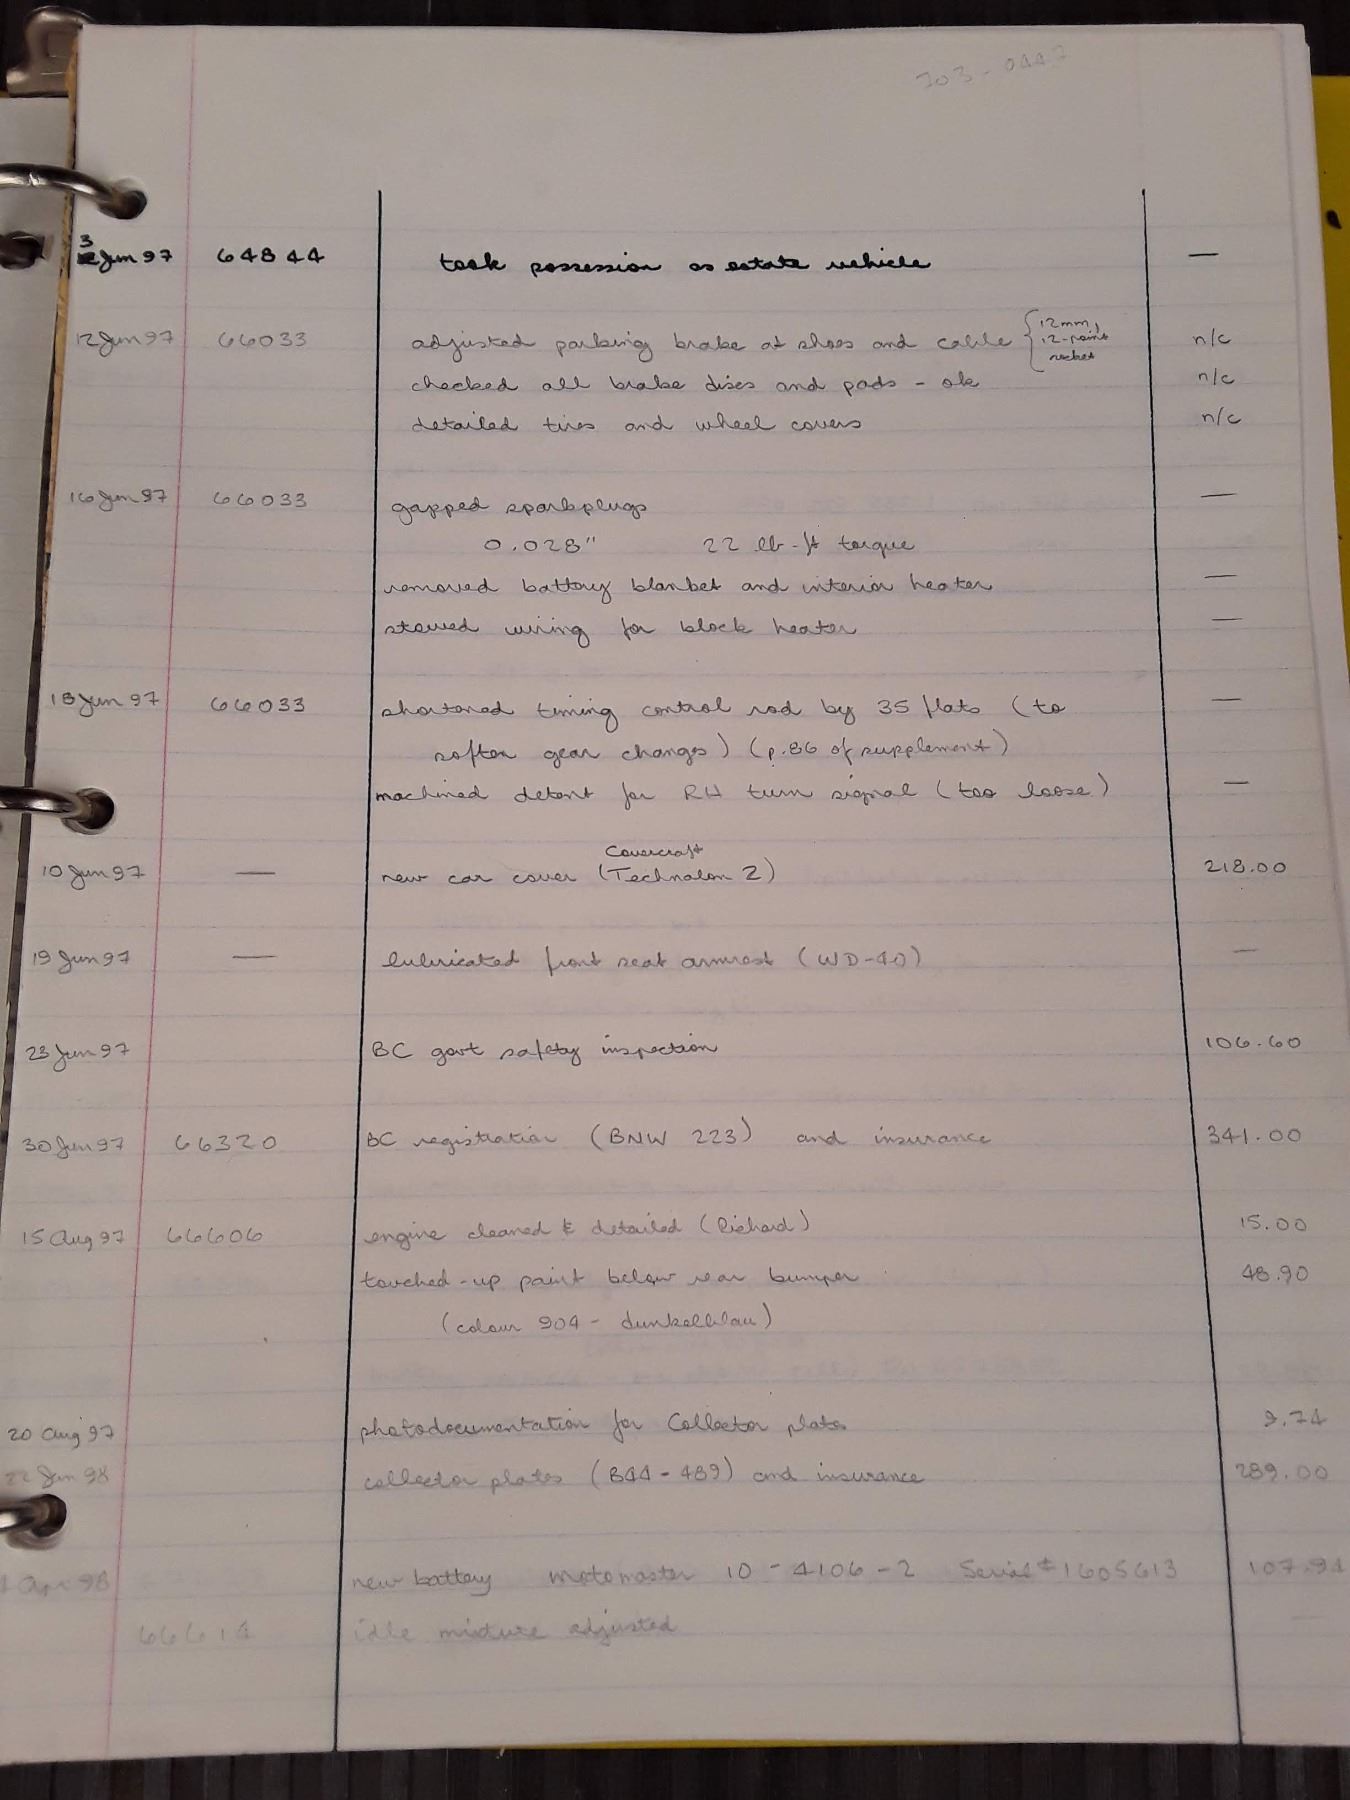 703-0447
3 Jun 97 64844 took possession as estate vehicle —
12 Jun 97 66033 adjusted parking brake at shoes and cable {12mm, 12-point socket n/c
checked all brake discs and pads - ok n/c
detailed tires and wheel covers n/c
16 Jun 97 66033 gapped sparkplugs —
0.028" 22 lb-ft torque
removed battery blanket and interior heater —
stowed wiring for block heater —
18 Jun 97 66033 shortened timing control rod by 35 flats (to —
soften gear changes) (p.86 of supplement)
machined detent for RH turn signal (too loose) —
Covercraft
10 Jun 97 — new car cover (Technalon 2) 218.00
19 Jun 97 — lubricated front seat armrest (WD-40) —
23 Jun 97 BC govt safety inspection 106.60
30 Jun 97 66320 BC registration (BNW 223) and insurance 341.00
15 Aug 97 66606 engine cleaned & detailed (Richard) 15.00
touched-up paint below rear bumper 48.90
(colour 904 - dunkelblau)
20 Aug 97 photodocumentation for Collector plates 9.74
22 Jun 98 collector plates (B44-489) and insurance 289.00
Apr 98 new battery motomaster 10-4106-2 Serial # 1605613 107.94
66614 idle mixture adjusted —